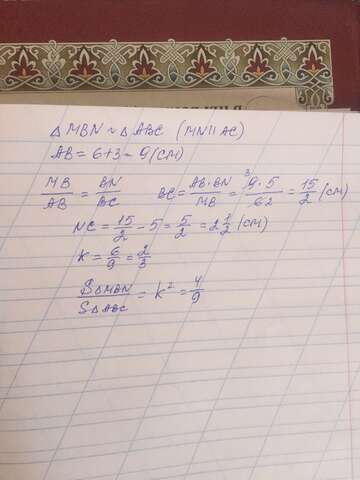 Δ MBN ~ Δ ABC (MN || AC)
AB = 6+3 = 9 (см)
MB/AB = BN/BC BC = AB·BN/MB = 9·5/6 = 15/2 (см)
NC = 15/2 - 5 = 5/2 = 2 1/2 (см)
K = 6/9 = 2/3
SΔMBN/SΔABC = K² = 4/9